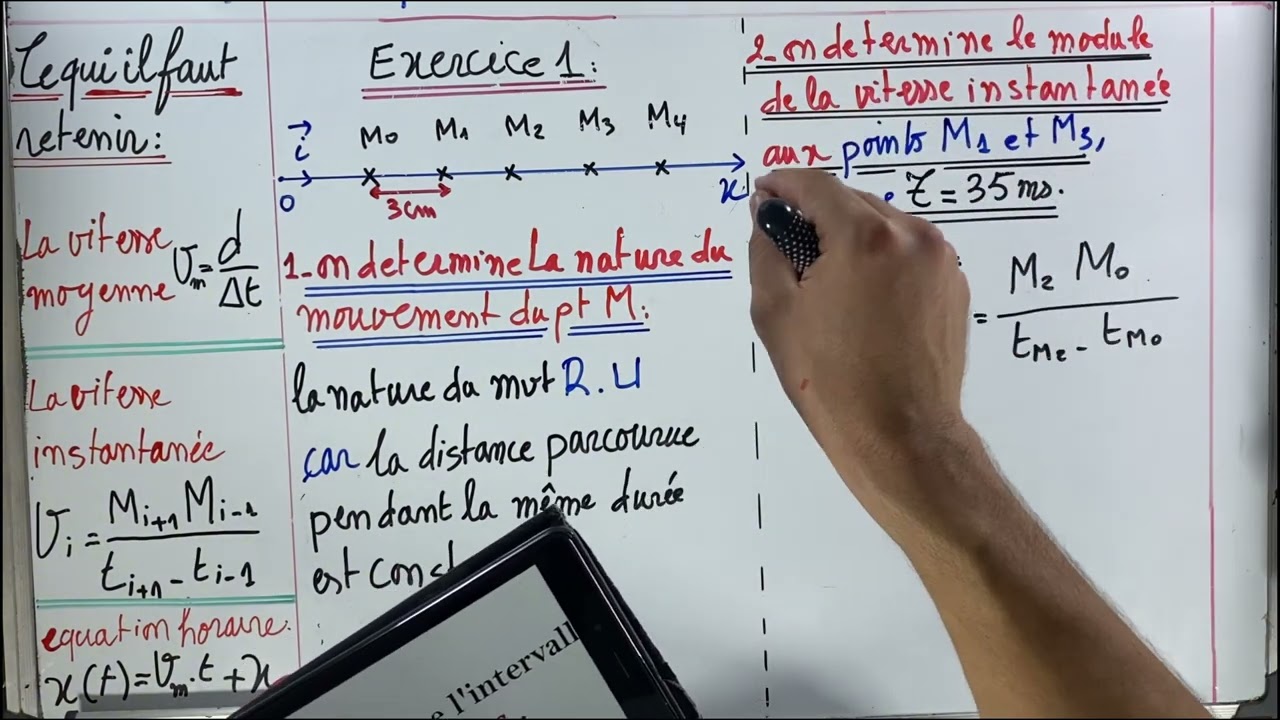 Ce qui il faut
retenir:
La vitesse
moyenne Vm = d / Δt
La vitesse
instantanée
Vi = Mi+1 Mi-1 / ti+1 - ti-1
equation horaire:
x(t) = Vm . t + x
Exercice 1:
i M0 M1 M2 M3 M4
0 x
3cm
1- on determine la nature du
mouvement du pt M:
la nature du mvt R.U
car la distance parcourue
pendant la même durée
est const
e l'intervall
2- on determine le module
de la vitesse instantaneé
aux points M1 et M3,
τ = 35 ms.
= M2 M0 / tM2 - tM0